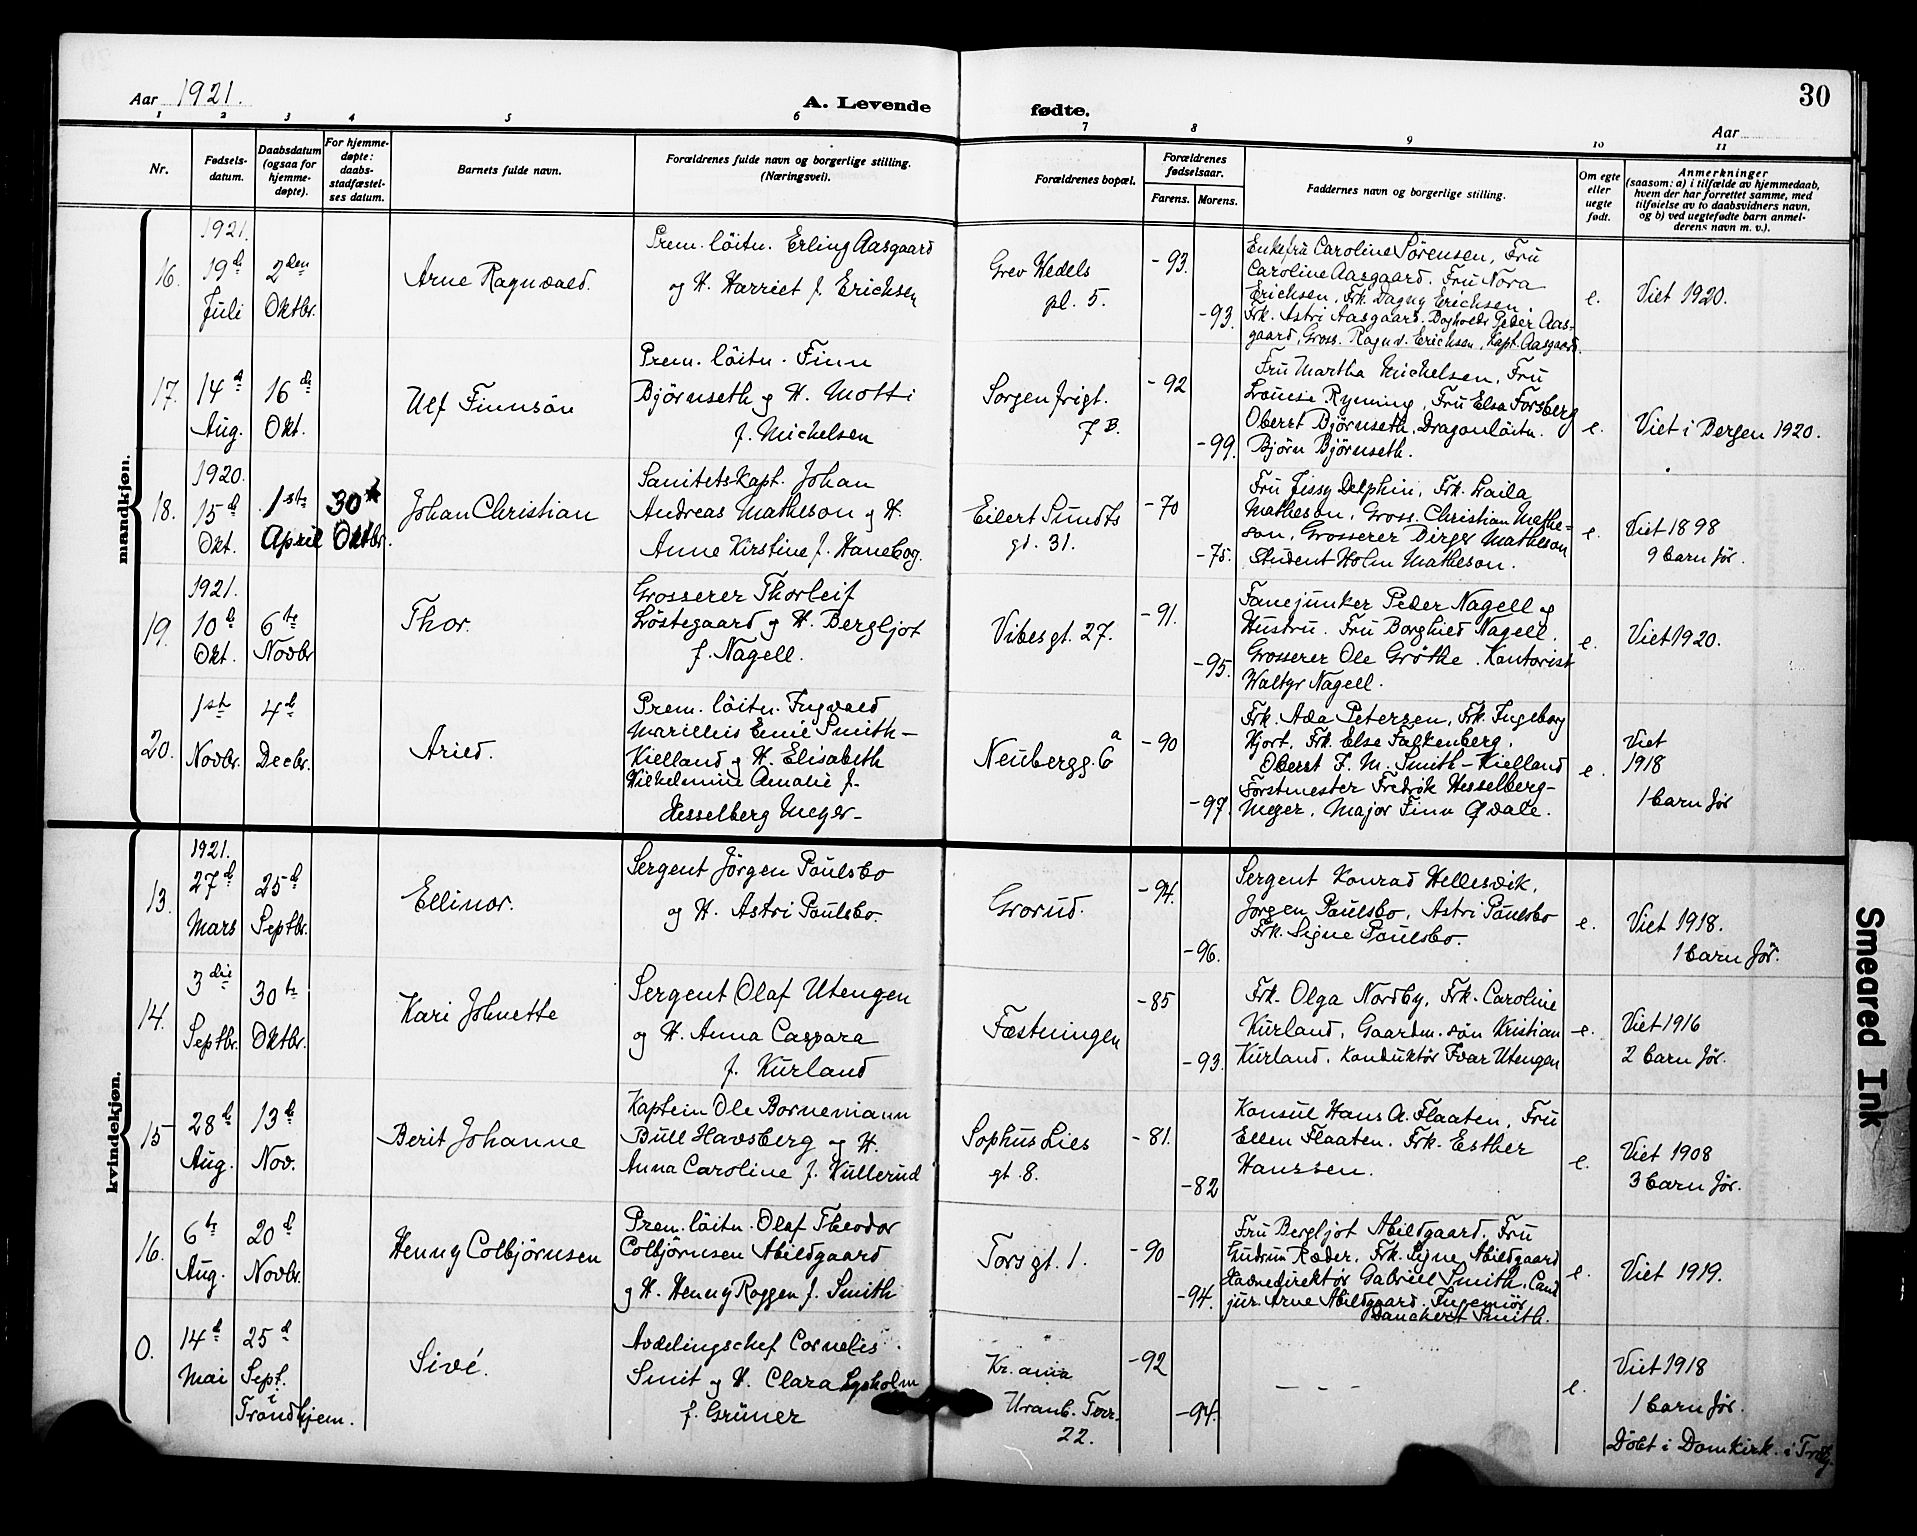 Aar 1921.
A. Levende fødte.
30
Aar
1 2 3 4 5 6 7 8 9 10 11
Nr.
Fødsels-
datum.
Daabsdatum
(ogsaa for
hjemme-
døpte).
For hjemme-
døpte:
daabs-
stadfæstel-
ses datum.
Barnets fulde navn.
Forældrenes fulde navn og borgerlige stilling.
(Næringsvei).
Forældrenes bopæl.
Forældrenes
fødselsaar.
Farens. Morens.
Faddernes navn og borgerlige stilling.
Om egte
eller
uegte
født.
Anmerkninger
(saasom: a) i tilfælde av hjemmedaab,
hvem der har forrettet samme, med
tilføielse av to daabsvidners navn,
og b) ved uegtefødte barn anmel-
derens navn m. v.).
mandkjøn.
16.
1921.
19d
Juli
2den
Oktbr.
Arne Ragnvald.
Prem. löitn. Erling Aasgaard
og H. Harriet f. Erichsen
Grev Wedels
pl. 5.
-93.
-93.
Enkefru Caroline Sørensen, Fru
Caroline Aasgaard. Fru Nora
Erichsen. Frk. Dagny Erichsen
Frk. Astri Aasgaard. Bogholdr Peder Aas-
gaard, Gross. Ragnv. Erichsen, Kapt. Aasgaard.
e.
Viet 1920.
17.
14d
Aug.
16d
Okt.
Ulf Finnsön
Prem. löitn. Finn
Björnseth og H. Motti
f. Michelsen
Sorgenfrigt.
7B.
-92
-99.
Fru Martha Michelsen, Fru
Lovise Ryming, Fru Elsa Forsberg
Oberst Björnseth. Dragonlöitn.
Björn Björnseth.
e.
Viet i Bergen 1920.
18.
1920.
15d
Okt.
1ste
April
30te
Oktbr.
Johan Christian
Sanitetskapt. Johan
Andreas Matheson og H.
Anne Kirstine f. Haneborg.
Eilert Sundts
gt. 31.
-70
-75.
Fru Jissy Delphin, Frk. Laila
Matheson, Gross. Christian Mathe-
son, Grosserer Birger Matheson
Student Holm Matheson.
e.
Viet 1898
9 barn för.
19.
1921.
10d
Okt.
6te
Novbr
Thor.
Grosserer Thorleif
Löstegaard og H. Bergljot
f. Nagell.
Vibesgt. 27.
-91.
-95.
Fanejunker Peder Nagell og
Hustru. Fru Borghild Nagell.
Grosserer Ole Gröthe. Kontorist
Waltyr Nagell.
e.
Viet 1920.
20.
1st
Novbr.
4d
Decbr.
Arild.
Prem. löitn. Ingvald
Marillius Emil Smith-
Kielland og H. Elisabeth
Wilhelmine Amalie f.
Hesselberg Meyer-
Neubergg. 6a
-90
-97.
Frk. Ada Petersen, Frk. Ingeborg
Hjort. Frk. Else Falkenberg.
Oberst F. M. Smith-Kielland
Forstmester Fredrik Hesselberg-
Meyer, Major Finn Qvale.
e.
Viet
1918
1 barn för
kvindekjøn.
13.
1921.
27d
Mars
25d
Septbr.
Ellinor.
Sergent Jörgen Paulsbo
og H. Astri Paulsbo.
Grorud.
-94.
-96.
Sergent Konrad Hellesvik,
Jörgen Paulsbo, Astri Paulsbo
Frk. Signe Paulsbo.
e.
Viet 1918.
1 barn för.
14.
3die
Septbr.
30te
Oktbr.
Kari Johnette
Sergent Olaf Utengen
og H. Anna Caspara
f. Kurland
Fæstningen
-85
-93.
Frk. Olga Nordby, Frk. Caroline
Kurland, Gaardm. sön Kristian
Kurland. Konduktör Ivar Utengen
e.
Viet 1916
2 barn för.
15
28d
Aug.
13d
Nov.
Berit Johanne
Kaptein Ole Bornemann
Bull Havsberg og H.
Anna Caroline f. Kullerud
Sophus Lies
gt. 8.
-81.
-82
Konsul Hans A. Flaaten, Fru
Ellen Flaaten. Frk. Esther
Hanssen.
e.
Viet 1908
3 barn för.
16.
6te
Aug.
20d
Novbr.
Henny Colbjörnsen
Prem. löitn. Olaf Theodor
Colbjörnsen Abildgaard
og H. Henny Roggen f. Smith
Torsgt. 1.
-90
-94.
Fru Bergljot Abildgaard. Fru
Gudrun Ræder. Frk. Signe Abildgaard
Havnedirektör Gabriel Smith. Cand
jur. Arne Abildgaard. Ingeniör
Banckert Smith.
e.
Viet 1919.
0.
14d
Mai
25d
Sept.
i
Trondhjem.
Sivé.
Avdelingschef Cornelis
Smit og H. Clara Lysholm
f. Grüner
Kr.ania
Uranb. Terr.
22.
-92
-94.
- - -
e.
Viet 1918
1 barn för.
Döbt i Domkirk. i Trhj.
Smeared Ink